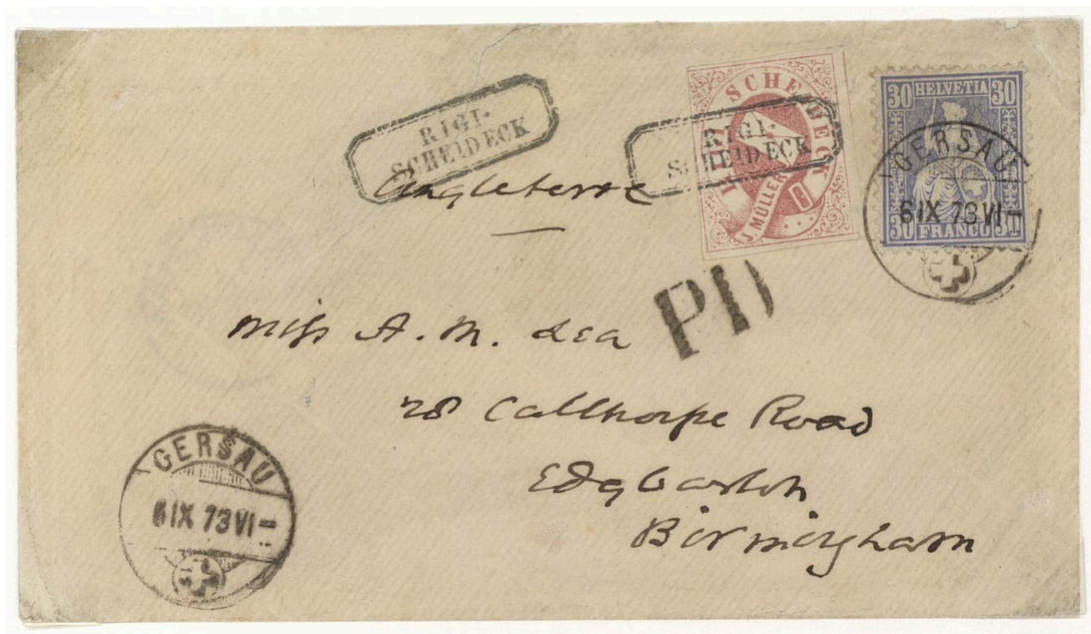 RIGI-
SCHEIDECK
RIGI-
SCHEIDECK
RIGI SCHEIDECK
J MÜLLER
30 HELVETIA 30
30 FRANCO 30
GERSAU
6 IX 73 VI
Angleterre
PD
Miss A. M. Lea
28 Calthorpe Road
Edgbaston
Birmingham
GERSAU
6 IX 73 VI